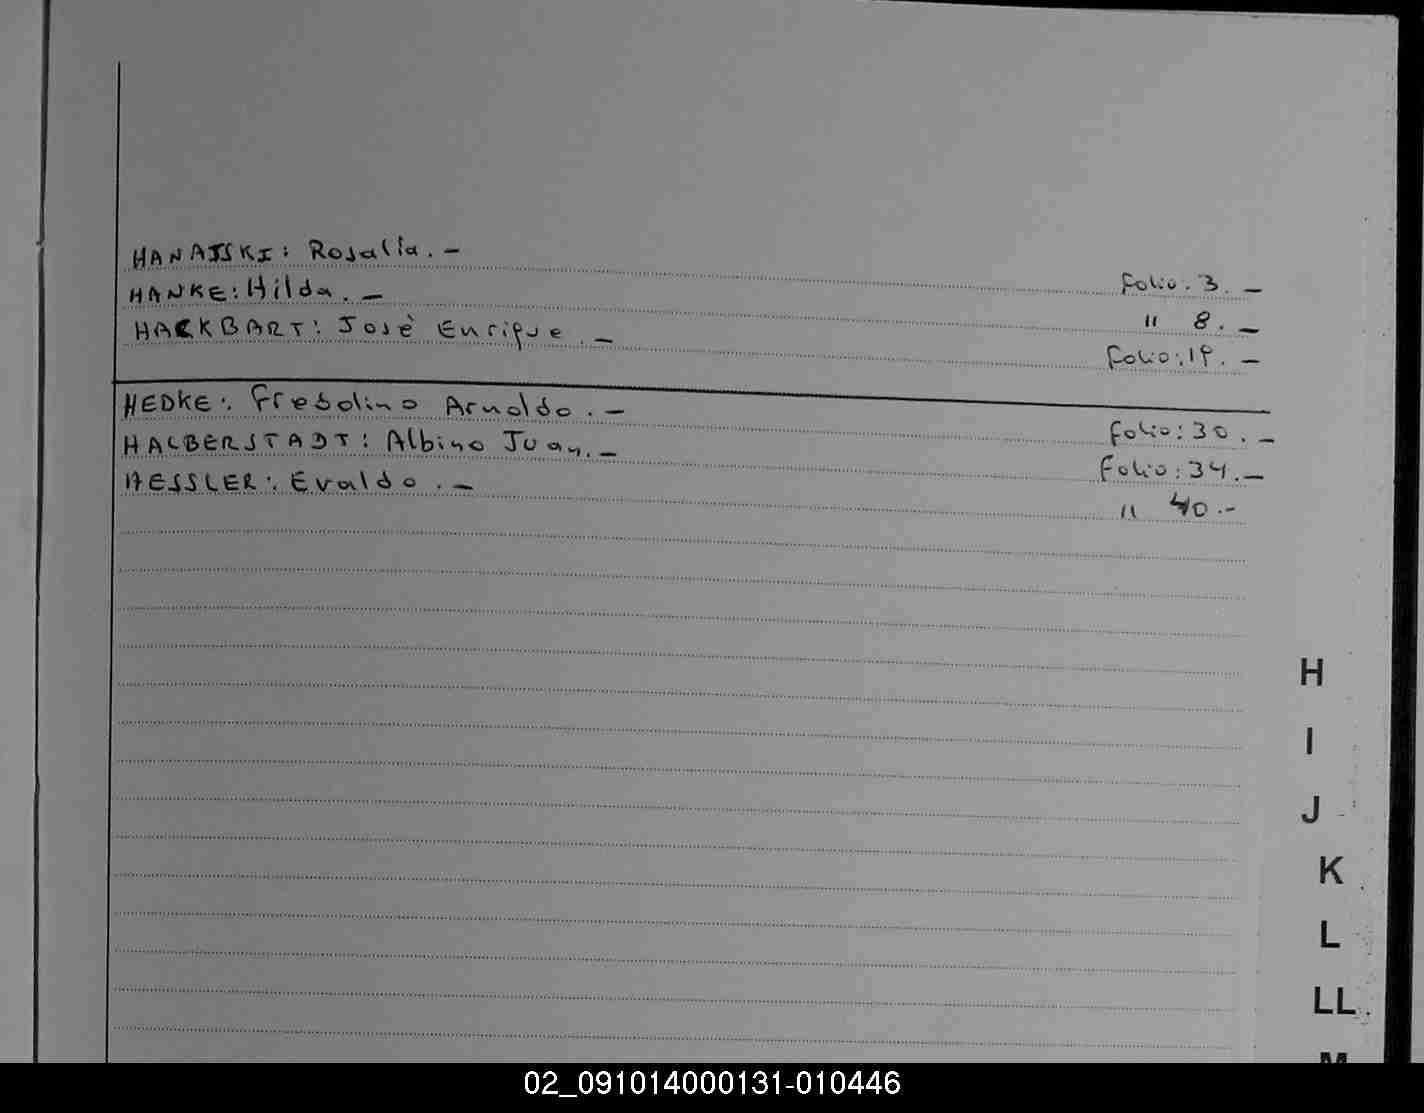 HANAJSKI: Rosalía. — Folio: 3. —
HANKE: Hilda. — " 8. —
HACKBART: Josè Enrique. — Folio: 19. —
HEDKE: Fredolino Arnoldo. — Folio: 30. —
HALBERSTADT: Albino Juan. — Folio: 34. —
HESSLER: Evaldo. — " 40.-
H
I
J
K
L
LL
M
02_091014000131-010446